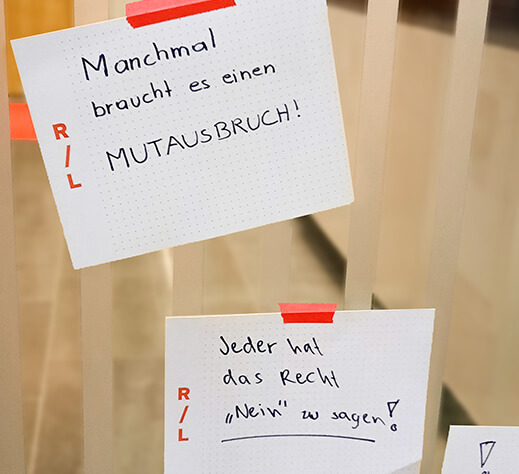 Manchmal
braucht es einen
MUTAUSBRUCH!
R
/
L
Jeder hat
das Recht
„Nein" zu sagen!
R
/
L
!